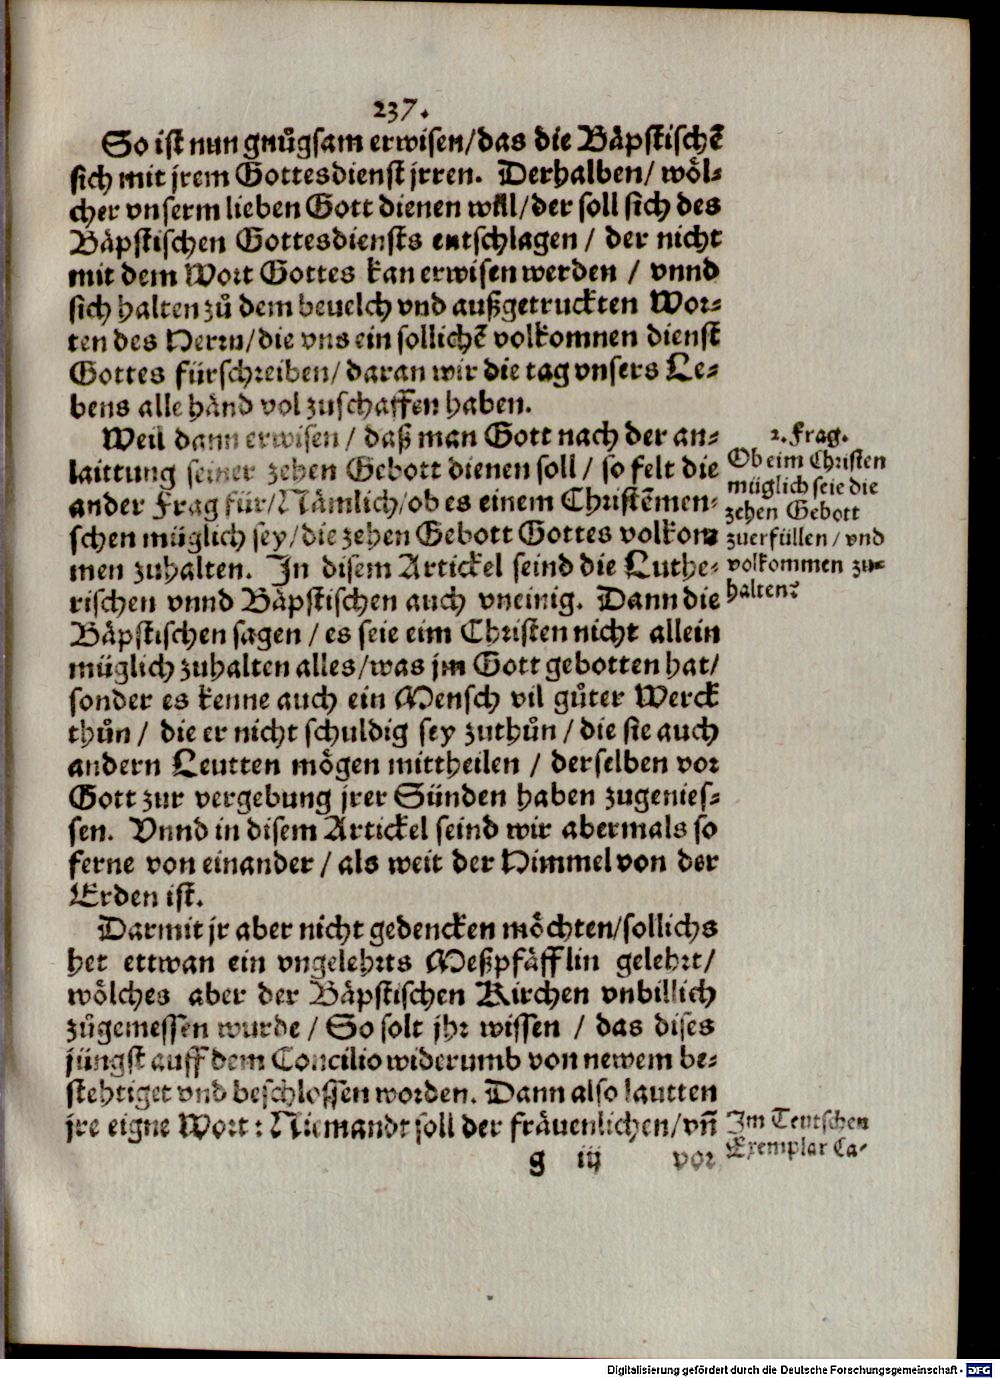 237.
So ist nun gnůgsam erwisen/das die Bäpstischē
sich mit jrem Gottesdienst jrren. Derhalben/ wöl-
cher vnserm lieben Gott dienen will/der soll sich des
Bäpstischen Gottesdiensts entschlagen / der nicht
mit dem Wort Gottes kan erwisen werden / vnnd
sich halten zů dem beuelch vnd außgetruckten Wor-
ten des Herrn/die vns ein sollichē volkomnen dienst
Gottes fürschreiben/daran wir die tag vnsers Le-
bens alle händ vol zuschaffen haben.
Weil dann erwisen / daß man Gott nach der an-
laittung seiner zehen Gebott dienen soll / so felt die
ander Frag für/Nämlich/ob es einem Christēmen-
schen müglich sey/die zehen Gebott Gottes volkom
men zuhalten. In disem Artickel seind die Luthe-
rischen vnnd Bäpstischen auch vneinig. Dann die
Bäpstischen sagen / es seie eim Christen nicht allein
müglich zuhalten alles/was jm Gott gebotten hat/
sonder es kenne auch ein Mensch vil gůter Werck
thůn / die er nicht schuldig sey zuthůn / die sie auch
andern Leutten mögen mittheilen / derselben vor
Gott zur vergebung jrer Sünden haben zugenies-
sen. Vnnd in disem Artickel seind wir abermals so
ferne von einander / als weit der Himmel von der
Erden ist.
Darmit jr aber nicht gedencken möchten/sollichs
het ettwan ein vngelehrts Meßpfäfflin gelehrt/
wölches aber der Bäpstischen Kirchen vnbillich
zůgemessen wurde / So solt jhr wissen / das dises
jüngst auff dem Concilio widerumb von newem be-
stehtiget vnd beschlossen worden. Dann also lautten
jre eigne Wort: Niemandt soll der fräuenlichen/vñ
g iij vor
2. Frag.
Ob eim Christen
müglich seie die
zehen Gebott
zuerfüllen/vnd
volkommen zu-
halten?
Im Teutschen
Exemplar Ca-
Digitalisierung gefördert durch die Deutsche Forschungsgemeinschaft - DFG